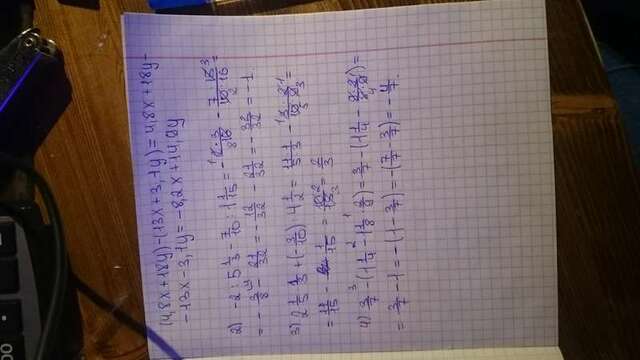 (4,8x+18y)-(13x+3,1y)=4,8x+18y-
-13x-3,1y=-8,2x+14,9y
2) -2:5 1/3 - 7/10 : 1 1/15 = - 2·3/16 - 7·15/10·16 =
= - 3/8 - 21/32 = - 12/32 - 21/32 = - 32/32 = -1.
3) 2 1/5 · 1/3 + (- 3/10) : 4 1/2 = 11/5 · 1/3 - 3·2/10·9 =
= 11/15 - 1/15 = 10/15 = 2/3
4) 3/7 - (1 1/4 - 1 1/8 · 2/9) = 3/7 - (1 1/4 - 9·2/8·9) =
= 3/7 - 1 = -(1 - 3/7) = -(7/7 - 3/7) = - 4/7.